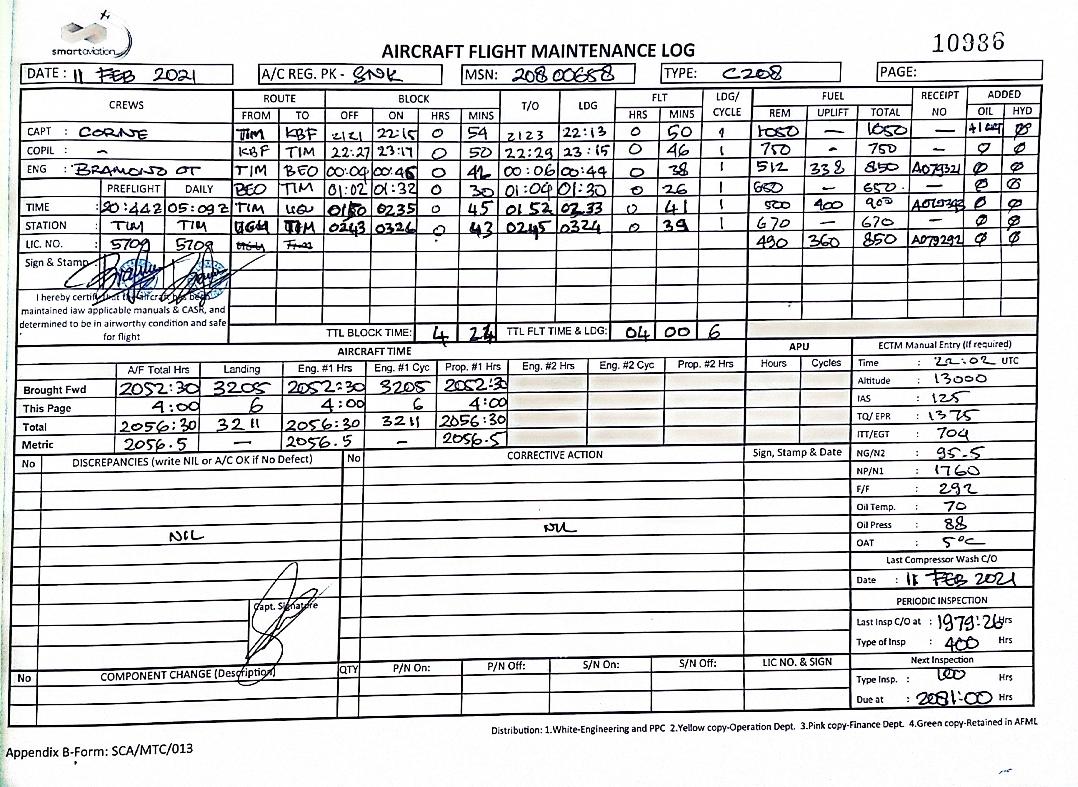 smartaviation
AIRCRAFT FLIGHT MAINTENANCE LOG
10986
DATE : 11 FEB 2021 A/C REG. PK - SNK MSN: 20800658 TYPE: C208 PAGE:
CREWS ROUTE BLOCK T/O LDG FLT LDG/ CYCLE FUEL RECEIPT NO ADDED
FROM TO OFF ON HRS MINS HRS MINS REM UPLIFT TOTAL OIL HYD
CAPT : CORNE TIM KBF 2121 22:15 0 54 2123 22:13 0 50 1 1050 — 1050 — Ø
COPIL : - KBF TIM 22:27 23:17 0 50 22:29 23:15 0 46 1 750 - 750 — Ø Ø
ENG : BRAMONO OT TIM BEO 00:04 00:46 0 42 00:06 00:44 0 38 1 512 338 850 A079321 Ø Ø
PREFLIGHT DAILY BEO TIM 01:02 01:32 0 30 01:04 01:30 0 26 1 650 - 650 - Ø Ø
TIME 20:44Z 05:09Z TIM 0150 0235 0 45 0152 0233 0 41 1 500 400 900 Ø Ø
STATION : TIM TIM 0243 0326 0 43 0245 0324 0 39 1 670 — 670 — Ø Ø
LIC. NO. : 5709 5709 490 360 850 A079292 Ø Ø
Sign & Stamp
I hereby certify that the Aircraft has been
maintained iaw applicable manuals & CASR, and
determined to be in airworthy condition and safe
for flight
TTL BLOCK TIME: 4 24 TTL FLT TIME & LDG: 04 00 6
AIRCRAFT TIME APU ECTM Manual Entry (If required)
A/F Total Hrs Landing Eng. #1 Hrs Eng. #1 Cyc Prop. #1 Hrs Eng. #2 Hrs Eng. #2 Cyc Prop. #2 Hrs Hours Cycles Time : 22:02 UTC
Brought Fwd 2052:30 3205 2052:30 3205 2052:30 Altitude : 13000
This Page 4:00 6 4:00 6 4:00 IAS : 125
Total 2056:30 3211 2056:30 3211 2056:30 TQ/ EPR : 1375
Metric 2056.5 — 2056.5 - 2056.5 ITT/EGT : 704
No DISCREPANCIES (write NIL or A/C OK if No Defect) No CORRECTIVE ACTION Sign, Stamp & Date NG/N2 : 95.5
NP/N1 : 1760
F/F : 292
Oil Temp. : 70
NIL NIL Oil Press : 88
OAT : 5°C
Last Compressor Wash C/O
Date : 11 FEB 2021
Capt. Signature
PERIODIC INSPECTION
Last Insp C/O at : 1979:26 Hrs
Type of Insp : 400 Hrs
No COMPONENT CHANGE (Description) QTY P/N On: P/N Off: S/N On: S/N Off: LIC NO. & SIGN Next Inspection
Type Insp. : 100 Hrs
Due at : 2081:00 Hrs
Distribution: 1.White-Engineering and PPC 2.Yellow copy-Operation Dept. 3.Pink copy-Finance Dept. 4.Green copy-Retained in AFML
Appendix B-Form: SCA/MTC/013